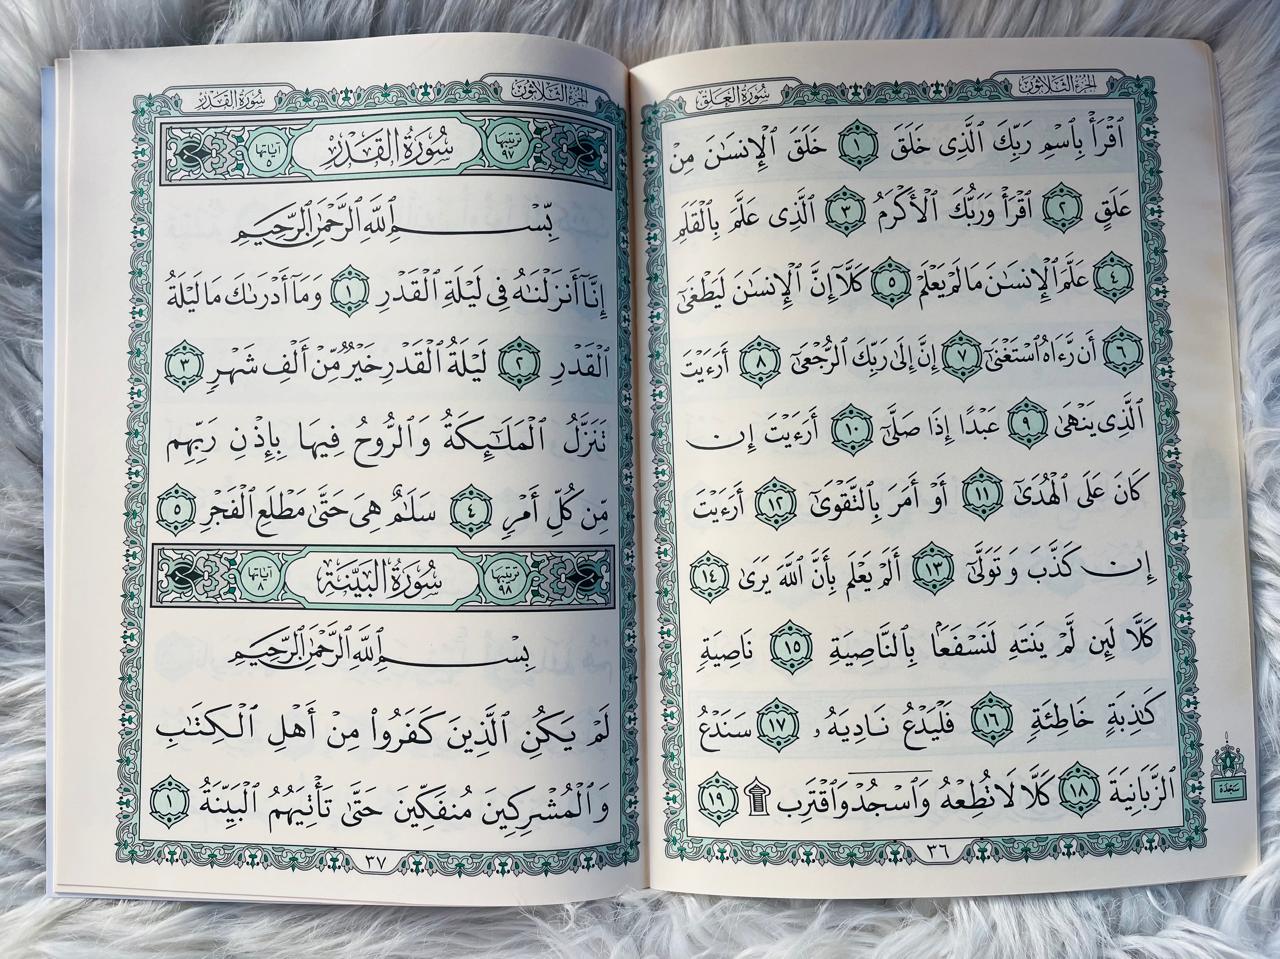 الجزء الثلاثون
سورة العلق
ٱقۡرَأۡ بِٱسۡمِ رَبِّكَ ٱلَّذِي خَلَقَ ١ خَلَقَ ٱلۡإِنسَٰنَ مِنۡ
عَلَقٍ ٢ ٱقۡرَأۡ وَرَبُّكَ ٱلۡأَكۡرَمُ ٣ ٱلَّذِي عَلَّمَ بِٱلۡقَلَمِ
٤ عَلَّمَ ٱلۡإِنسَٰنَ مَا لَمۡ يَعۡلَمۡ ٥ كَلَّآ إِنَّ ٱلۡإِنسَٰنَ لَيَطۡغَىٰٓ
٦ أَن رَّءَاهُ ٱسۡتَغۡنَىٰٓ ٧ إِنَّ إِلَىٰ رَبِّكَ ٱلرُّجۡعَىٰٓ ٨ أَرَءَيۡتَ
ٱلَّذِي يَنۡهَىٰ ٩ عَبۡدًا إِذَا صَلَّىٰٓ ١٠ أَرَءَيۡتَ إِن
كَانَ عَلَى ٱلۡهُدَىٰٓ ١١ أَوۡ أَمَرَ بِٱلتَّقۡوَىٰٓ ١٢ أَرَءَيۡتَ
إِن كَذَّبَ وَتَوَلَّىٰٓ ١٣ أَلَمۡ يَعۡلَم بِأَنَّ ٱللَّهَ يَرَىٰ ١٤
كَلَّا لَئِن لَّمۡ يَنتَهِ لَنَسۡفَعَۢا بِٱلنَّاصِيَةِ ١٥ نَاصِيَةٍ
كَٰذِبَةٍ خَاطِئَةٍ ١٦ فَلۡيَدۡعُ نَادِيَهُۥ ١٧ سَنَدۡعُ
ٱلزَّبَانِيَةَ ١٨ كَلَّا لَا تُطِعۡهُ وَٱسۡجُدۡۤ وَٱقۡتَرِب ۩ ١٩
سجدة
٣٦
الجزء الثلاثون
سورة القدر
ترتيبها ٩٧ سُورَةُ القَدْرِ آياتها ٥
بِّسۡمِ ٱللَّهِ ٱلرَّحۡمَٰنِ ٱلرَّحِيمِ
إِنَّآ أَنزَلۡنَٰهُ فِي لَيۡلَةِ ٱلۡقَدۡرِ ١ وَمَآ أَدۡرَىٰكَ مَا لَيۡلَةُ
ٱلۡقَدۡرِ ٢ لَيۡلَةُ ٱلۡقَدۡرِ خَيۡرٞ مِّنۡ أَلۡفِ شَهۡرٖ ٣
تَنَزَّلُ ٱلۡمَلَٰٓئِكَةُ وَٱلرُّوحُ فِيهَا بِإِذۡنِ رَبِّهِم
مِّن كُلِّ أَمۡرٖ ٤ سَلَٰمٌ هِيَ حَتَّىٰ مَطۡلَعِ ٱلۡفَجۡرِ ٥
ترتيبها ٩٨ سُورَةُ البَيِّنَةِ آياتها ٨
بِسۡمِ ٱللَّهِ ٱلرَّحۡمَٰنِ ٱلرَّحِيمِ
لَمۡ يَكُنِ ٱلَّذِينَ كَفَرُواْ مِنۡ أَهۡلِ ٱلۡكِتَٰبِ
وَٱلۡمُشۡرِكِينَ مُنفَكِّينَ حَتَّىٰ تَأۡتِيَهُمُ ٱلۡبَيِّنَةُ ١
٣٧